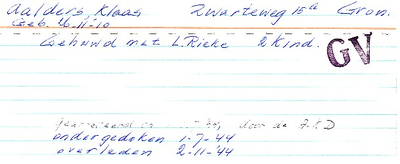 Aalders, Klaas Zwarteweg 15a Gron.
Geb. 6-11-10
Gehuwd met L. Rieke 2 Kind.
GV
gearresteerd door de A.K.D
ondergedoken 1-7-44
overleden 2-11-44